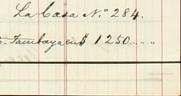 La Casa No. 284.
Tambaya en $ 1250...